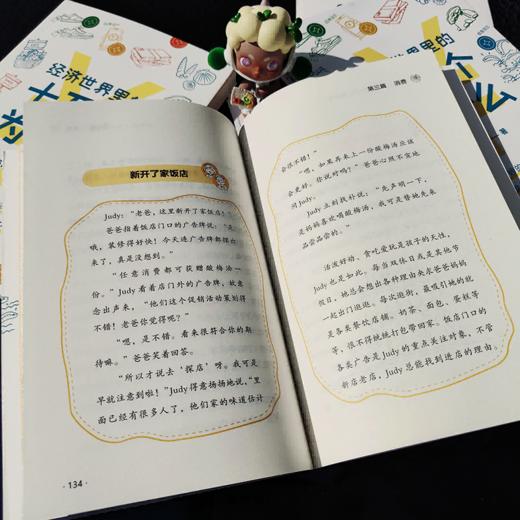 经济世界里
经济世界里的
第三篇 消费
新开了家饭店
Judy：“老爸，这里新开了家饭店！”
爸爸指着饭店门口的广告牌说：“是
哦，装修得好快！今天连广告牌都摆出
来了，真是没想到。”
“任意消费都可获赠酸梅汤一
份。”Judy看着店门外的广告牌，故意
念出声来，“他们这个促销活动策划得
不错！老爸你觉得呢？”
“嗯，是不错。看来很符合你的期
待嘛。”爸爸笑着回答。
“所以才说去‘探店’呀。我可是
早就注意到啦！”Judy得意扬扬地说，“里
面已经有很多人了，他们家的味道估计
·134·
会很不错！”
“嗯，如果再来上一份酸梅汤应该
会更好。你说对吗？”爸爸心照不宣地
问Judy。
Judy立刻找补说：“先声明一下，
是妈妈喜欢喝酸梅汤，我可是替她先来
品尝品尝的。”
活泼好动、贪吃爱玩是孩子的天性，
Judy也是如此。每当双休日或是其他节
假日，她总会想出各种理由央求爸爸妈妈
一起出门逛逛。每次逛街，最吸引她的就
是各类餐饮店铺。奶茶、面包、蛋糕等
等，很不得统统打包带回家。饭店门口的
各类广告是Judy的重点关注对象，不管
新店老店，Judy总能找到进店的理由。